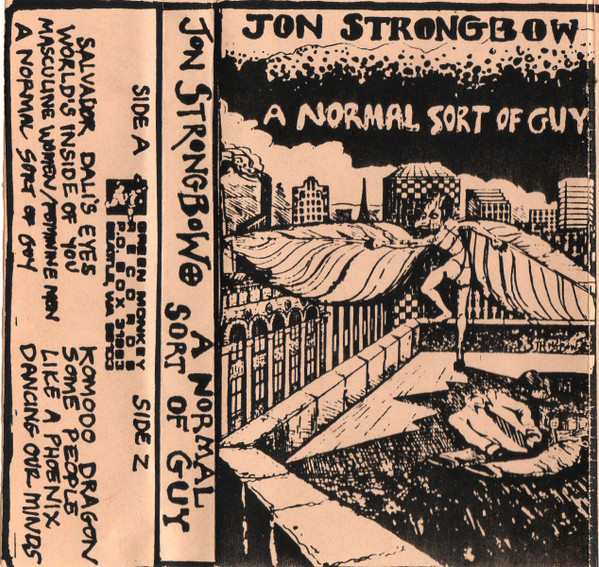 JON STRONGBOW
A NORMAL SORT OF GUY
JON STRONGBOW
A NORMAL
SORT OF GUY
SIDE A
SALVADOR DALI'S EYES
WORLD'S INSIDE OF YOU
MASCULINE WOMEN/FEMININE MEN
A NORMAL SORT OF GUY
GREEN MONKEY
RECORDS
P.O. BOX 31983
SEATTLE, WA
SIDE 2
KOMODO DRAGON
SOME PEOPLE
LIKE A PHOENIX
DANCING OUR MINDS